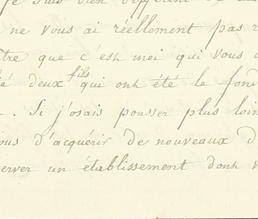 je suis bien
ne vous ai réellement pas r
tre que c'est moi qui vous a
é deux fils qui ont été le fond
. Si j'osais pousser plus loin
ous d'acquérir de nouveaux d
server un établissement dont v